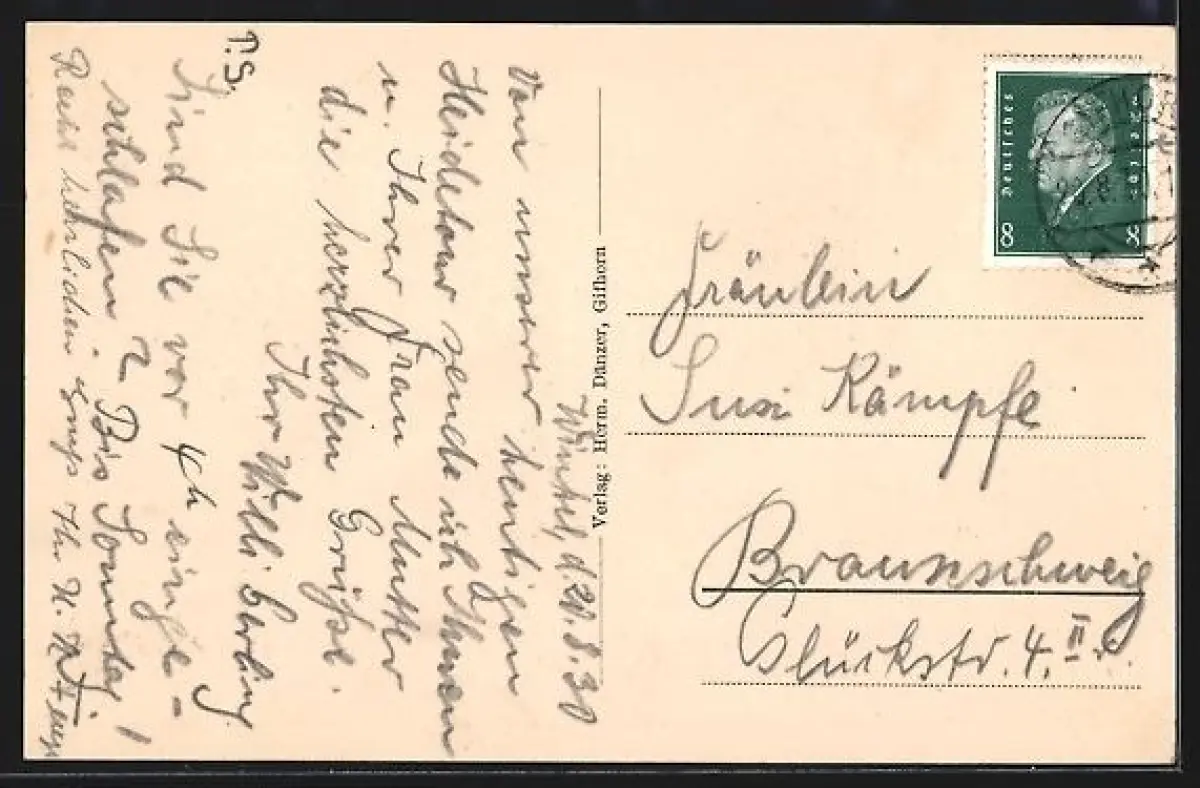 Winkel, d. 20. 8. 30
Von unserer heutigen
Heidetour sende ich Ihnen
u. Ihrer Frau Mutter
die herzlichsten Grüße.
Ihr Willi
P.S.
Sind Sie vor 4h einge-
schlafen? Bis Sonntag!
Recht herzlichen Ihr
Verlag: Herm. Dänzer, Gifhorn
Deutsches Reich
8 8
Fräulein
Susi Kämpfe
Braunschweig
Glückstr. 4. II.